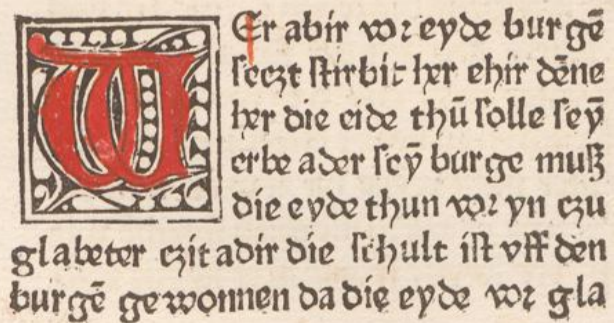 WEr abir vor eyde burgē
seczt stirbit her ehir dēne
her die eide thū solle seȳ
erbe ader seȳ burge muß
die eyde thun vor yn czu
glabeter czit adir die schult ist vff den
burgē gewonnen da die eyde vor gla